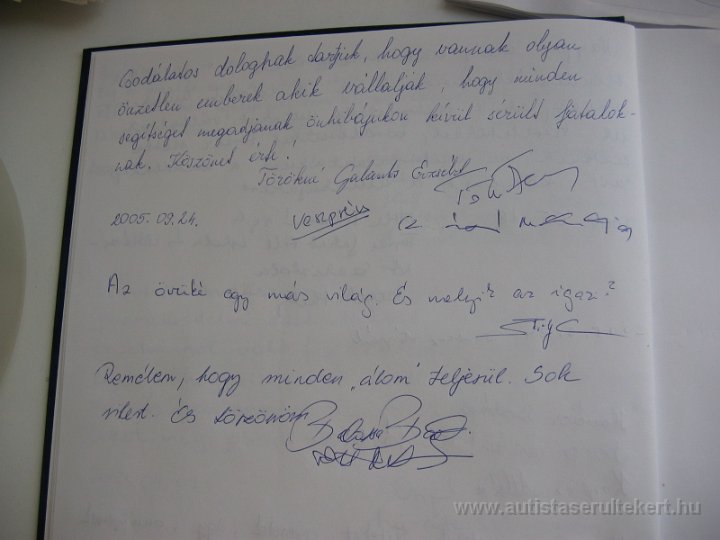 Csodálatos dolognak tartjuk, hogy vannak olyan
önzetlen emberek akik vállalják, hogy minden
segítséget megadjanak önhibájukon kívül sérült fiatalok-
nak. Köszönet érte!
Törökné Galambos Erzsébet
2005.09.24. Veszprém az
Az övéké egy más világ. És melyik az igazi?
Remélem, hogy minden "álom" teljesül. Sok
sikert. És köszönöm
www.autistaserultekert.hu